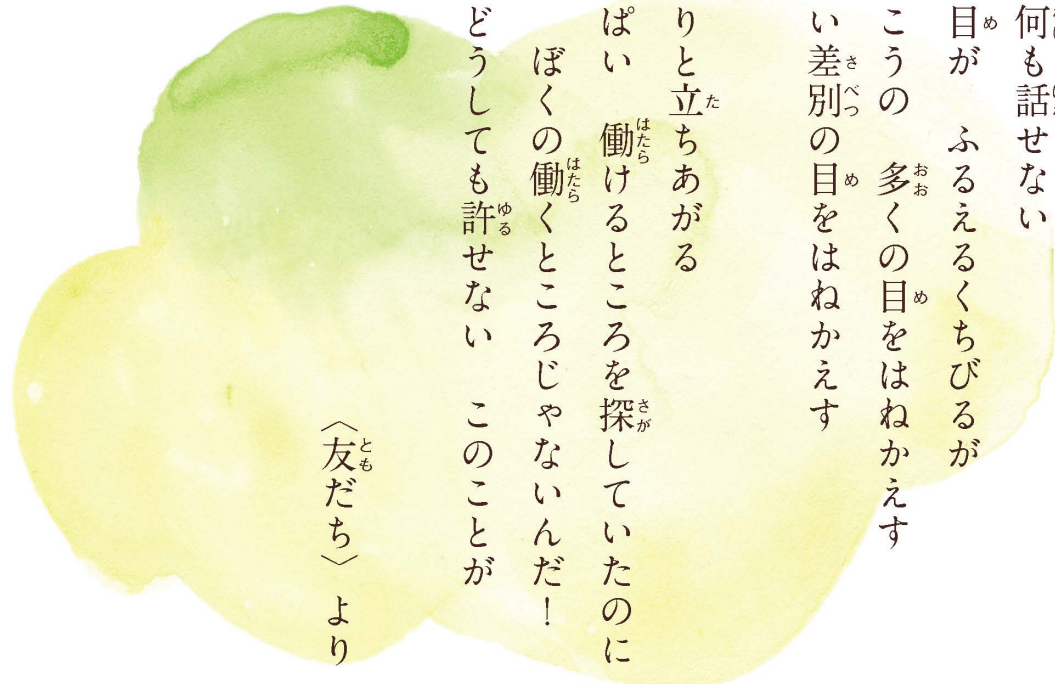 何も話せない
目が　ふるえるくちびるが
こうの　多くの目をはねかえす
い差別の目をはねかえす
りと立ちあがる
ぱい　働けるところを探していたのに
ぼくの働くところじゃないんだ！
どうしても許せない　このことが
〈友だち〉より